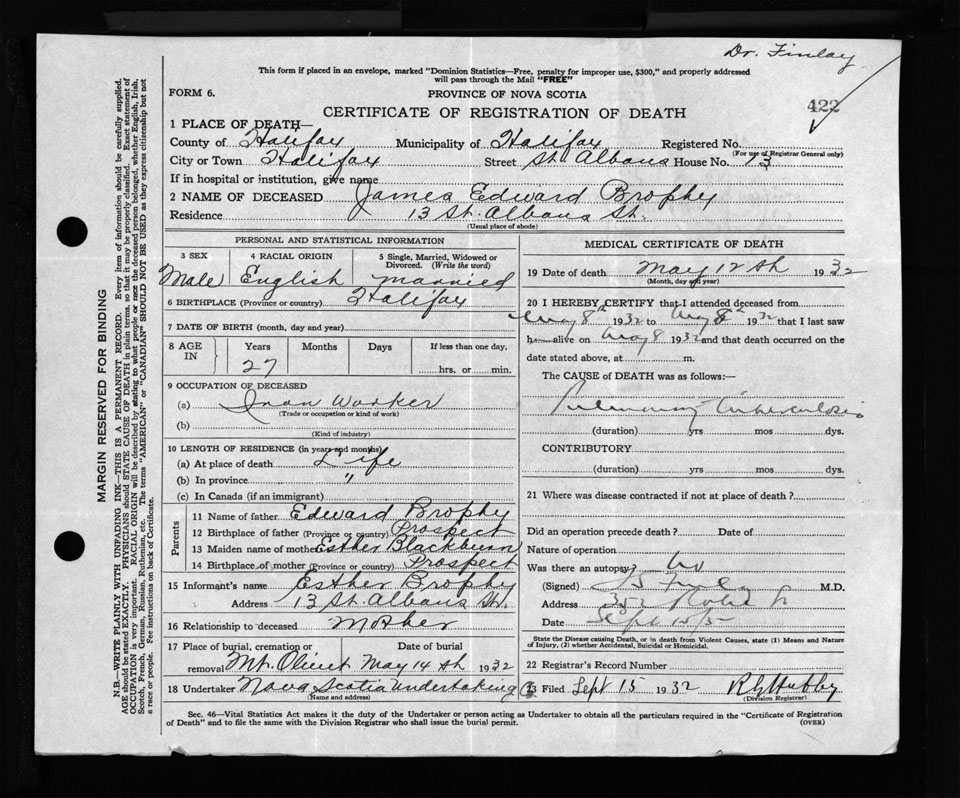 Dr. Finlay
This form if placed in an envelope, marked "Dominion Statistics—Free, penalty for improper use, $300," and properly addressed
will pass through the Mail "FREE"
FORM 6.
PROVINCE OF NOVA SCOTIA
422
CERTIFICATE OF REGISTRATION OF DEATH
1 PLACE OF DEATH—
County of Halifax Municipality of Halifax Registered No.
(For use of Registrar General only)
City or Town Halifax Street St. Albans House No. 13
If in hospital or institution, give name
2 NAME OF DECEASED James Edward Brophy
Residence 13 St. Albans St.
(Usual place of abode)
PERSONAL AND STATISTICAL INFORMATION
3 SEX 4 RACIAL ORIGIN 5 Single, Married, Widowed or
Divorced. (Write the word)
Male English Married
6 BIRTHPLACE (Province or country) Halifax
7 DATE OF BIRTH (month, day and year)
8 AGE IN Years Months Days If less than one day,
27 hrs. or min.
9 OCCUPATION OF DECEASED
(a) Iron Worker
(Trade or occupation or kind of work)
(b)
(Kind of industry)
10 LENGTH OF RESIDENCE (in years and months)
(a) At place of death Life
(b) In province "
(c) In Canada (if an immigrant)
Parents
11 Name of father Edward Brophy
12 Birthplace of father (Province or country) Prospect
13 Maiden name of mother Esther Blackburn
14 Birthplace of mother (Province or country) Prospect
15 Informant's name Esther Brophy
Address 13 St. Albans St.
16 Relationship to deceased Mother
17 Place of burial, cremation or Date of burial
removal Mt. Olivet May 14th 1932
18 Undertaker Nova Scotia Undertaking Co
(Name and address)
MEDICAL CERTIFICATE OF DEATH
19 Date of death May 12th 1932
(Month, day and year)
20 I HEREBY CERTIFY that I attended deceased from
May 8th 1932 to May 8th 1932 that I last saw
h alive on May 8 1932 and that death occurred on the
date stated above, at m.
The CAUSE of DEATH was as follows:—
Pulmonary Tuberculosis
(duration) yrs mos dys.
CONTRIBUTORY
(duration) yrs mos dys.
21 Where was disease contracted if not at place of death?
Did an operation precede death? Date of
Nature of operation
Was there an autopsy? No
(Signed) M.D.
Address
Date Sept 15/32
State the Disease causing Death, or in death from Violent Causes, state (1) Means and Nature
of Injury, (2) whether Accidental, Suicidal or Homicidal.
22 Registrar's Record Number
23 Filed Sept 15 1932
(Division Registrar)
Sec. 46—Vital Statistics Act makes it the duty of the Undertaker or person acting as Undertaker to obtain all the particulars required in the "Certificate of Registration
of Death" and to file the same with the Division Registrar who shall issue the burial permit. (OVER)
MARGIN RESERVED FOR BINDING
N.B.—WRITE PLAINLY WITH UNFADING INK—THIS IS A PERMANENT RECORD. Every item of information should be carefully supplied.
AGE should be stated EXACTLY. PHYSICIANS should STATE CAUSE OF DEATH in plain terms, so that it may be properly classified. Exact statement of
OCCUPATION is very important. RACIAL ORIGIN will be described by stating to what people or race the deceased person belonged, whether English, Irish,
Scotch, French, German, Russian, Ruthenian, etc. The terms "AMERICAN" or "CANADIAN" SHOULD NOT BE USED as they express citizenship but not
a race or people. See instructions on back of Certificate.